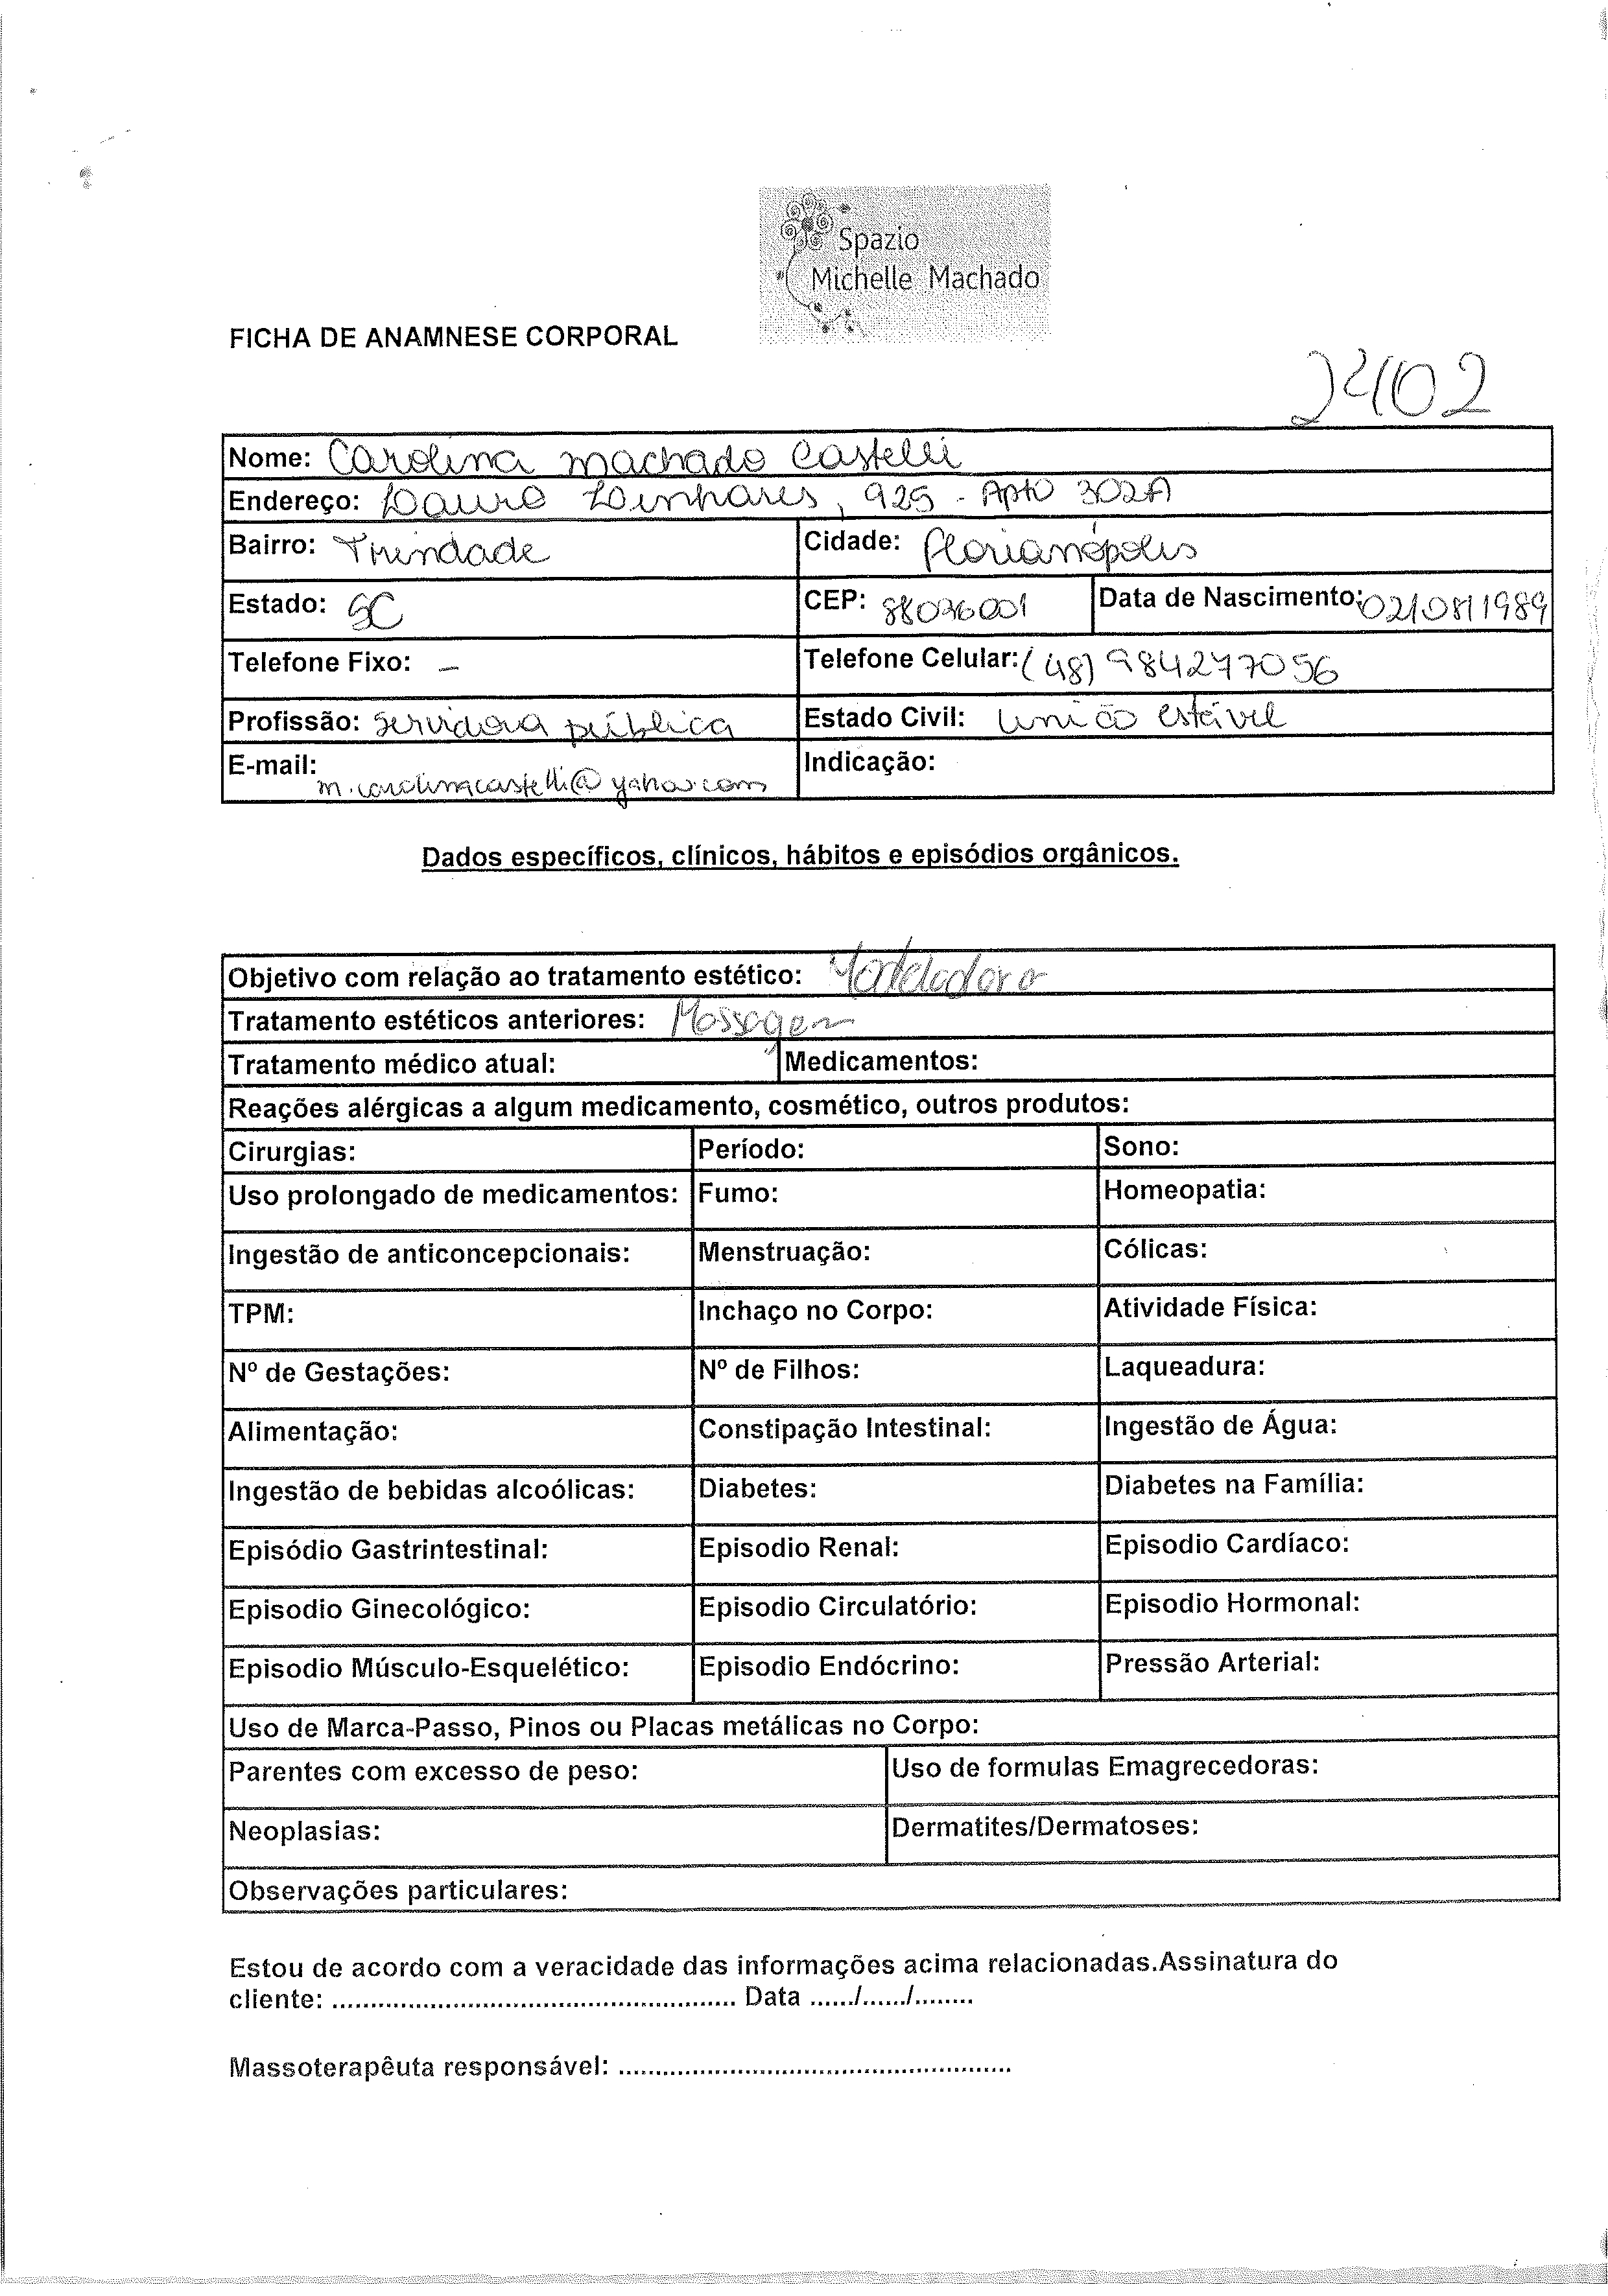 Spazio
Michelle Machado
FICHA DE ANAMNESE CORPORAL
2402
Nome: Carolina machado Castelli
Endereço: Lauro Linhares, 925 - Apto 302A
Bairro: Trindade Cidade: Florianópolis
Estado: SC CEP: 88036001 Data de Nascimento: 02/08/1989
Telefone Fixo: – Telefone Celular: (48) 984277056
Profissão: Servidora pública Estado Civil: união estável
E-mail: m.carolinacastelli@yahoo.com Indicação:
Dados específicos, clínicos, hábitos e episódios orgânicos.
Objetivo com relação ao tratamento estético:
Tratamento estéticos anteriores: Massagem
Tratamento médico atual: Medicamentos:
Reações alérgicas a algum medicamento, cosmético, outros produtos:
Cirurgias: Período: Sono:
Uso prolongado de medicamentos: Fumo: Homeopatia:
Ingestão de anticoncepcionais: Menstruação: Cólicas:
TPM: Inchaço no Corpo: Atividade Física:
Nº de Gestações: Nº de Filhos: Laqueadura:
Alimentação: Constipação Intestinal: Ingestão de Água:
Ingestão de bebidas alcoólicas: Diabetes: Diabetes na Família:
Episódio Gastrintestinal: Episodio Renal: Episodio Cardíaco:
Episodio Ginecológico: Episodio Circulatório: Episodio Hormonal:
Episodio Músculo-Esquelético: Episodio Endócrino: Pressão Arterial:
Uso de Marca-Passo, Pinos ou Placas metálicas no Corpo:
Parentes com excesso de peso: Uso de formulas Emagrecedoras:
Neoplasias: Dermatites/Dermatoses:
Observações particulares:
Estou de acordo com a veracidade das informações acima relacionadas.Assinatura do
cliente: .................................................... Data ....../....../........
Massoterapêuta responsável: ...................................................